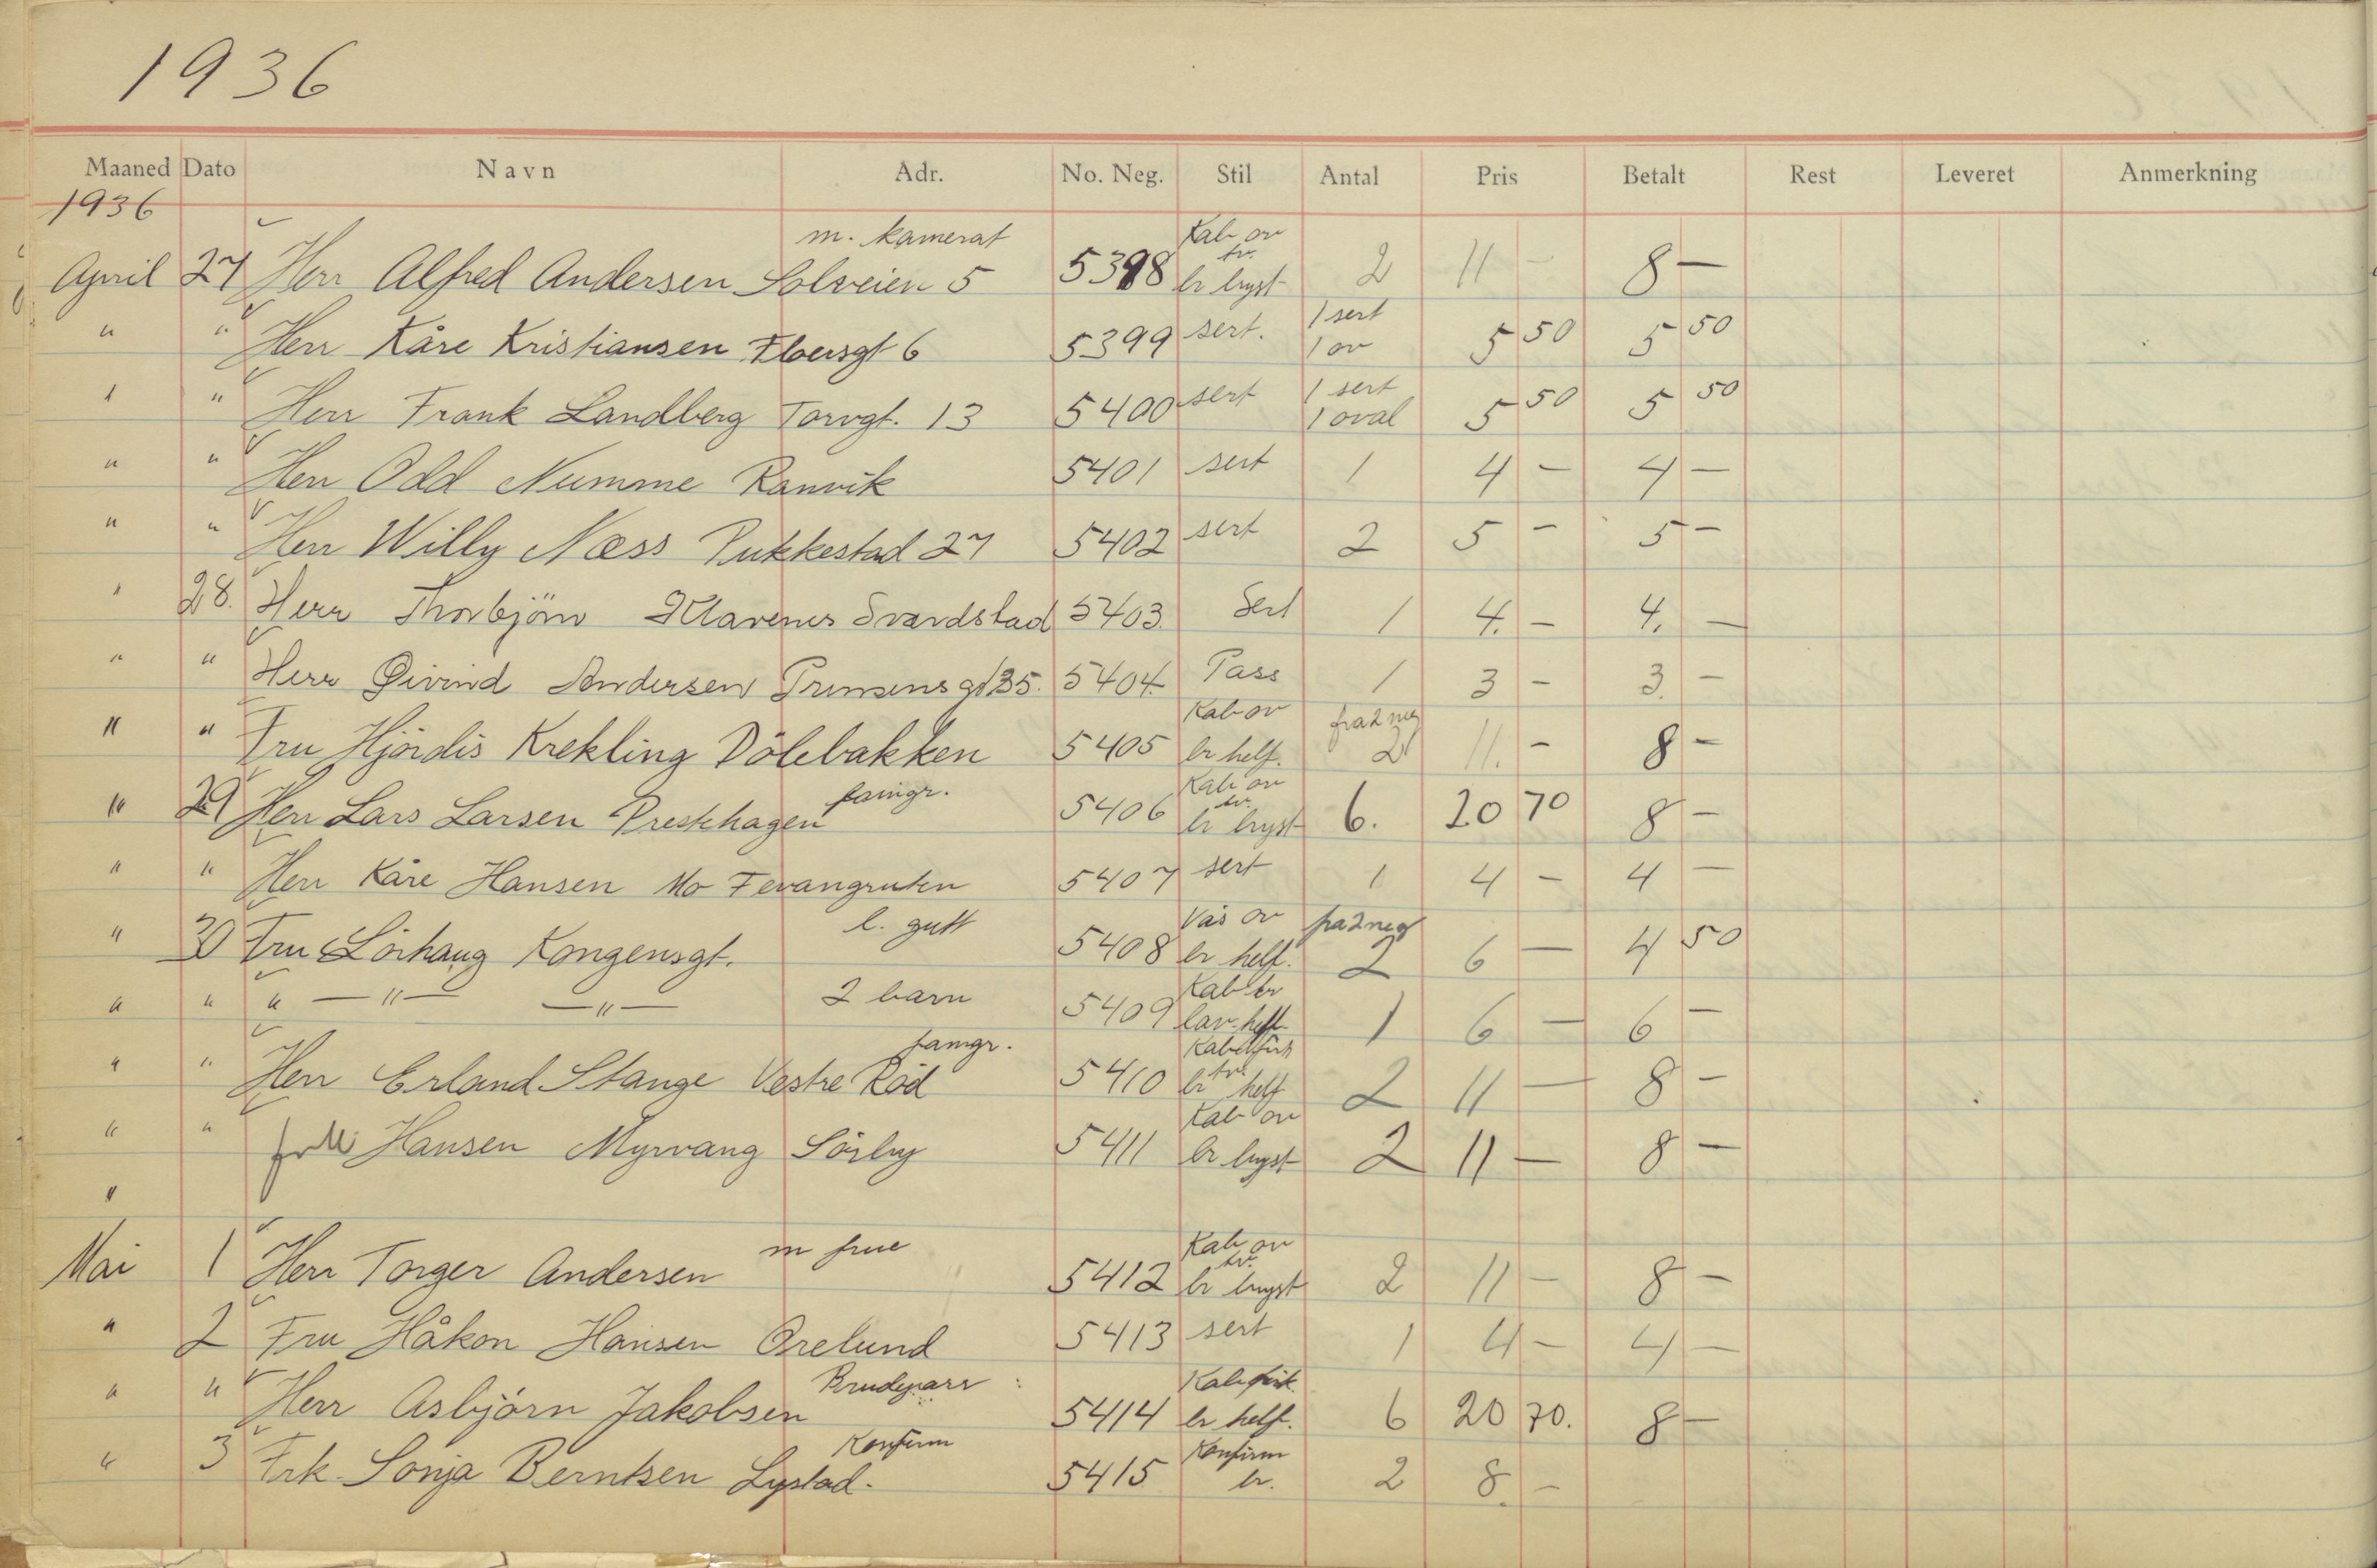 1936
Maaned Dato Navn Adr. No. Neg. Stil Antal Pris Betalt Rest Leveret Anmerkning
1936
m. kamerat Kab ov tv.
April 27 Herr Alfred Andersen Solveien 5 5398 br bryst 2 11 - 8 -
" " Herr Kåre Kristiansen Floersgt 6 5399 sert. 1 sert 1 ov 5 50 5 50
" " Herr Frank Landberg Torvgt. 13 5400 sert 1 sert 1 oval 5 50 5 50
" " Herr Odd Numme Ranvik 5401 sert 1 4 - 4 -
" " Herr Willy Næss Pukkestad 27 5402 sert 2 5 - 5 -
" 28. Herr Thorbjörn Klavenes Svardstad 5403. Sert 1 4. - 4. -
" " Herr Øivind Andersen Prinsensgt 35. 5404 Pass 1 3 - 3. -
Kab ov fra 2 neg
" " Fru Hjördis Krekling Dölebakken 5405 br helf. 2 11. - 8 -
famgr. Kab ov tv.
" 29 Herr Lars Larsen Preskhagen 5406 br bryst 6. 20 70 8 -
" " Herr Kåre Hansen Mo Fevangruten 5407 sert 1 4 - 4 -
l. gutt Vis ov fra 2 neg
" 30 Fru Lörhaug Kongensgt. 5408 br helf. 2 6 - 4 50
2 barn Kab br
" " " — " — — " — 5409 lav. helf. 1 6 - 6 -
famgr. Kab firk tv.
" " Herr Erland Stange Vestre Röd 5410 br helf 2 11 - 8 -
Kab ov
" " Hansen Myrvang Sörby 5411 br bryst 2 11 - 8 -
"
m frue Kab ov tv.
Mai 1 Herr Torger Andersen 5412 br bryst 2 11 - 8 -
" 2 Fru Håkon Hansen Ørelund 5413 sert 1 4 - 4 -
Brudeparr Kab firk.
" " Herr Asbjörn Jakobsen 5414 br helf. 6 20 70. 8 -
Konfirm Konfirm
" 3 Frk. Sonja Berntsen Lystad. 5415 br. 2 8. -